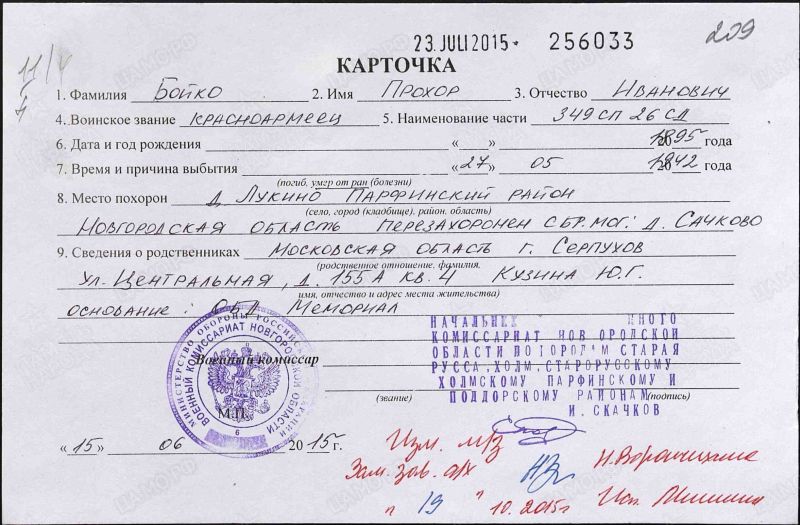 23. JULI 2015 256033 209
КАРТОЧКА
11/V
1. Фамилия Бойко 2. Имя Прохор 3. Отчество Иванович
4. Воинское звание красноармеец 5. Наименование части 349 СП 26 СД
6. Дата и год рождения « » 1895 года
7. Время и причина выбытия «27» 05 1942 года
(погиб, умер от ран (болезни)
8. Место похорон д. Лукино Парфинский район
(село, город (кладбище), район, область)
Новгородская область перезахоронен сбр.мог: д. Сачково
9. Сведения о родственниках Московская область г. Серпухов
(родственное отношение, фамилия,
ул. Центральная, д. 155А кв. 4 Кузина Ю.Г.
имя, отчество и адрес места жительства)
основание: ОБД Мемориал
НАЧАЛЬНИК ННОГО
КОМИССАРИАТ НОВ ОРОДСКОЙ
ОБЛАСТИ ПО ГОРОДАМ СТАРАЯ
РУССА, ХОЛМ, СТАРОРУССКОМУ
ХОЛМСКОМУ ПАРФИНСКОМУ И
ПОДДОРСКОМУ РАЙОНАМ
И. СКАЧКОВ
Военный комиссар
(звание) (подпись)
МИНИСТЕРСТВО ОБОРОНЫ РОССИЙСКОЙ ФЕДЕРАЦИИ
ВОЕННЫЙ КОМИССАРИАТ НОВГОРОДСКОЙ ОБЛАСТИ
6
М.П.
«15» 06 2015г.
Изм. м/з
Зам. зав. а/х
"19" 10.2015г